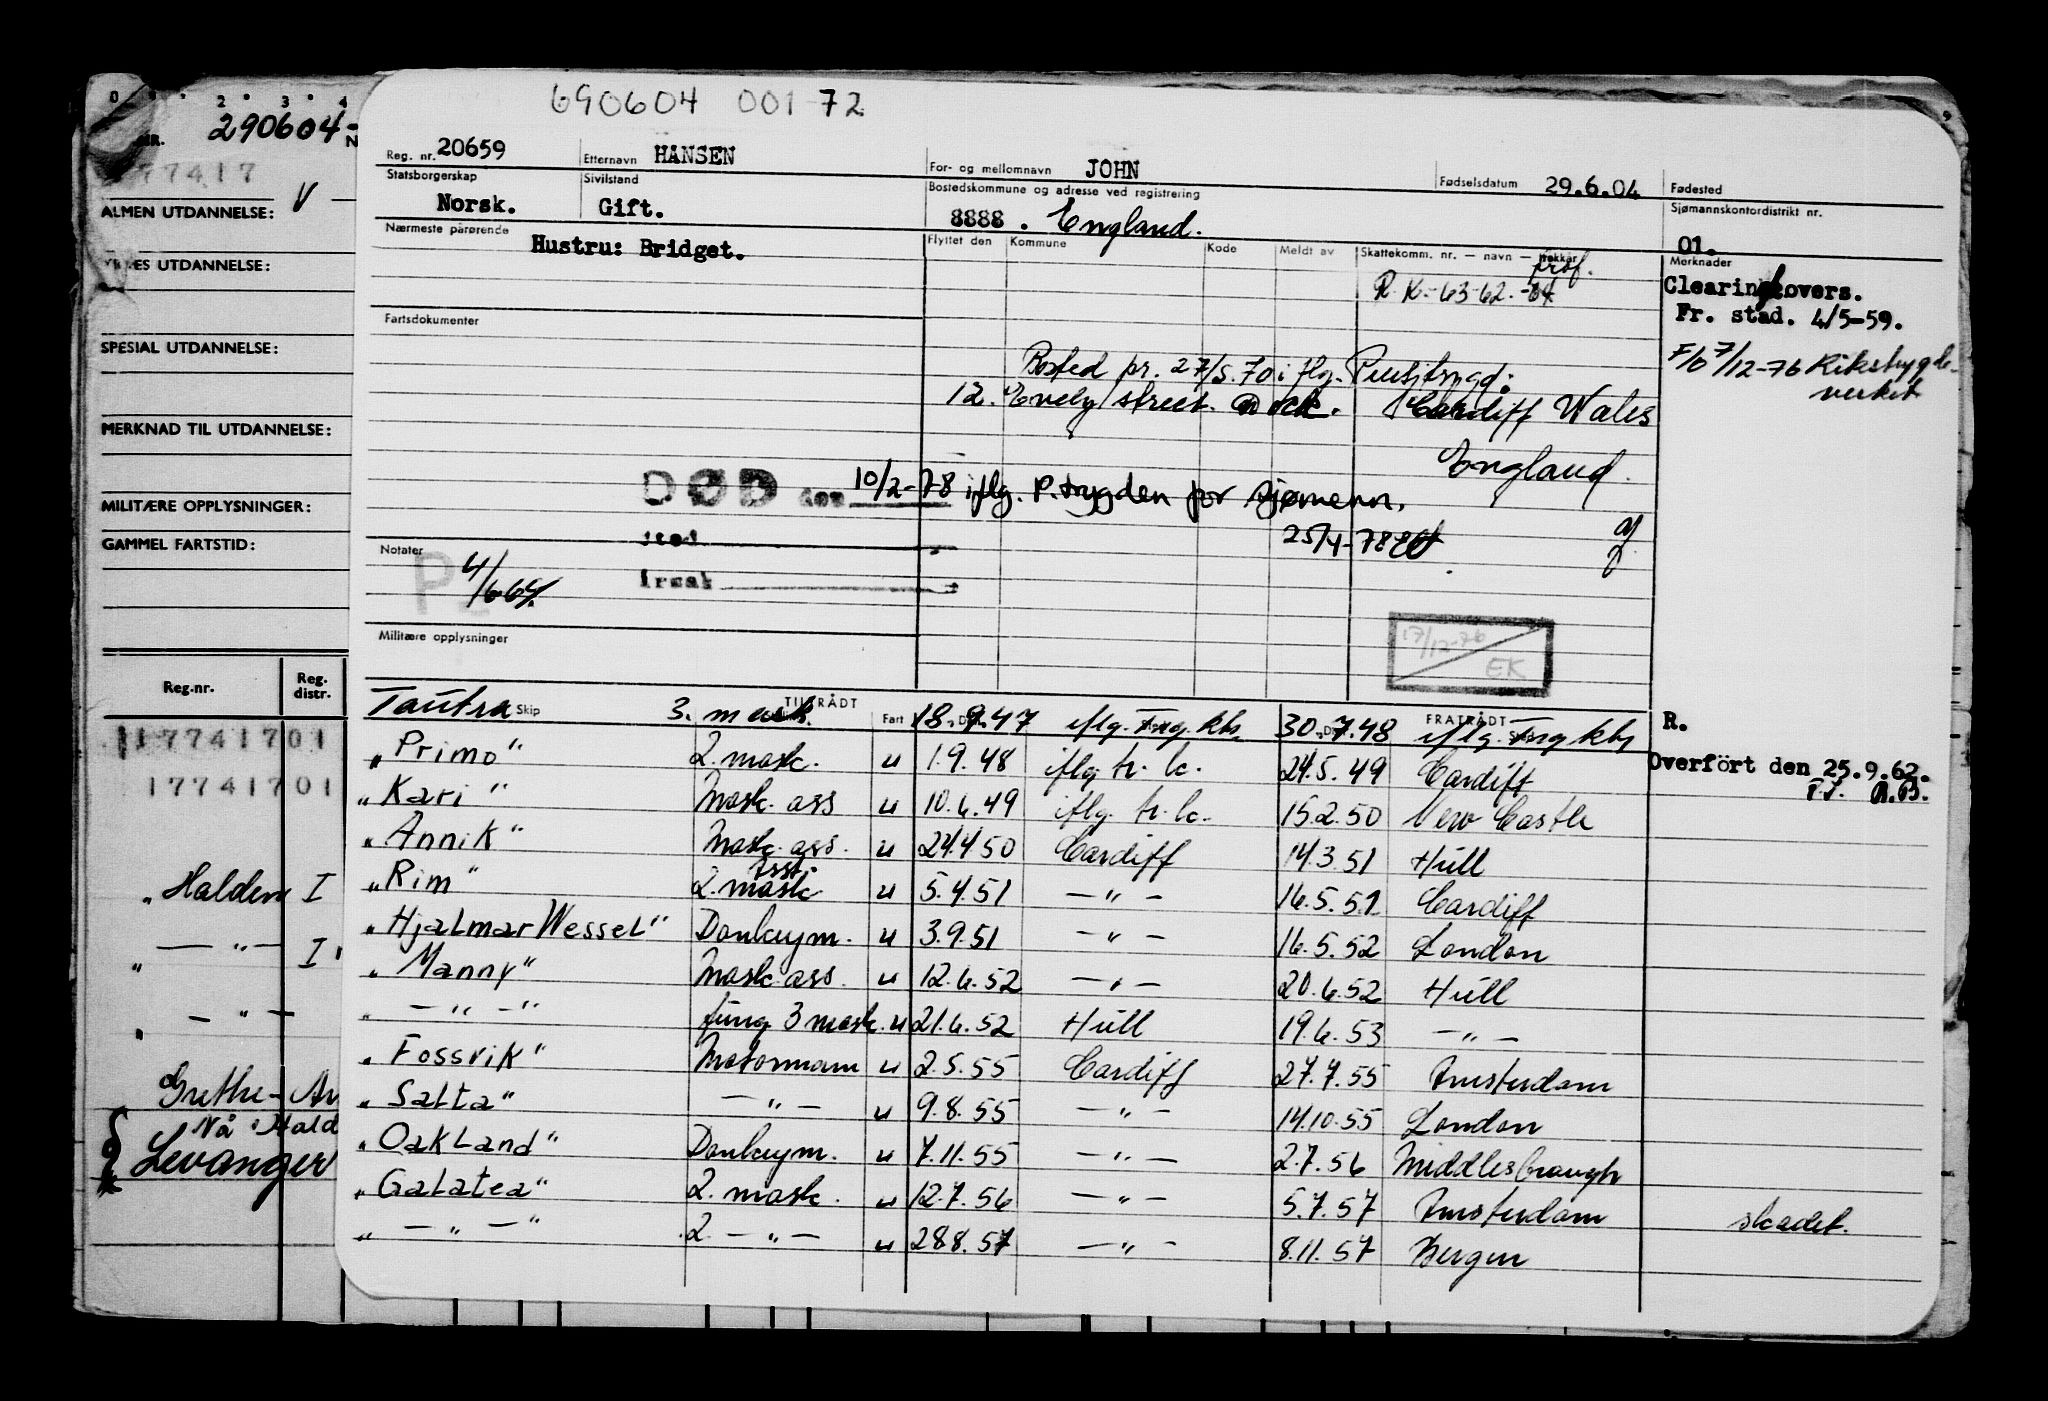 690604 001 72
0 2 3 4
290604-
NR.
77417
V
ALMEN UTDANNELSE:
UTDANNELSE:
SPESIAL UTDANNELSE:
MERKNAD TIL UTDANNELSE:
MILITÆRE OPPLYSNINGER:
GAMMEL FARTSTID:
Reg.nr. Reg. distr.
17741701
17741701
„ Halden I
„ — „ — I
„ — „ —
Grethe-
Nå Hald
Levanger
Reg. nr. 20659 Etternavn HANSEN For- og mellomnavn JOHN Fødselsdatum 29.6.04 Fødested
Statsborgerskap Sivilstand Bostedskommune og adresse ved registrering Sjømannskontordistrikt nr.
Norsk. Gift. 8888 . England. 01.
Nærmeste pårørende Flyttet den Kommune Kode Meldt av Skattekomm. nr. — navn — trekkår Merknader
Hustru: Bridget. prof.
R.K.-63-62.-64. Clearingkovers.
Fr. stad. 4/5-59.
Fartsdokumenter
F/o 7/12-76 Rikstrygdeverket
Bosted pr. 27/5.70 iflg. Pensjtrygd:
12. Evely street. Dock. Cardiff Wales
England.
DØD den 10/2-78 iflg. P.trygden for sjømenn.
sted 25/4-78
årsak
Notater
P 4/6-64.
17/12-76
EK
Militære opplysninger
Skip TILTRÅDT Fart FRATRÅDT R.
Tautra 3. mask. 18.9.47 iflg. Trygkts 30.7.48 iflg. Trygkts
„Primo" 2. mask. u 1.9.48 iflg tr. k. 24.5.49 Cardiff Overført den 25.9.62.
„Kari" Mask. ass u 10.6.49 iflg. tr. k. 15.2.50 New Castle
„Annik" Mask. ass. u 24.4.50 Cardiff 14.3.51 Hull
„Rim" 2. mask asst. u 5.4.51 — „ — 16.5.51 Cardiff
„Hjalmar Wessel" Donkeym. u 3.9.51 — „ — 16.5.52 London
„Manny" Mask. ass. u 12.6.52 — „ — 20.6.52 Hull
„ — „ — " fung 3 mask. u 21.6.52 Hull 19.6.53 — „ —
„Fossvik" Motormann u 2.5.55 Cardiff 27.7.55 Amsterdam
„Salta" — „ — u 9.8.55 — „ — 14.10.55 London
„Oakland" Donkeym. u 7.11.55 — „ — 2.7.56 Middlesbrough
„Galatea" 2. mask. u 12.7.56 — „ — 5.7.57 Amsterdam skadet.
„ — „ — " 2. — „ — u 28.8.57 — „ — 8.11.57 Bergen